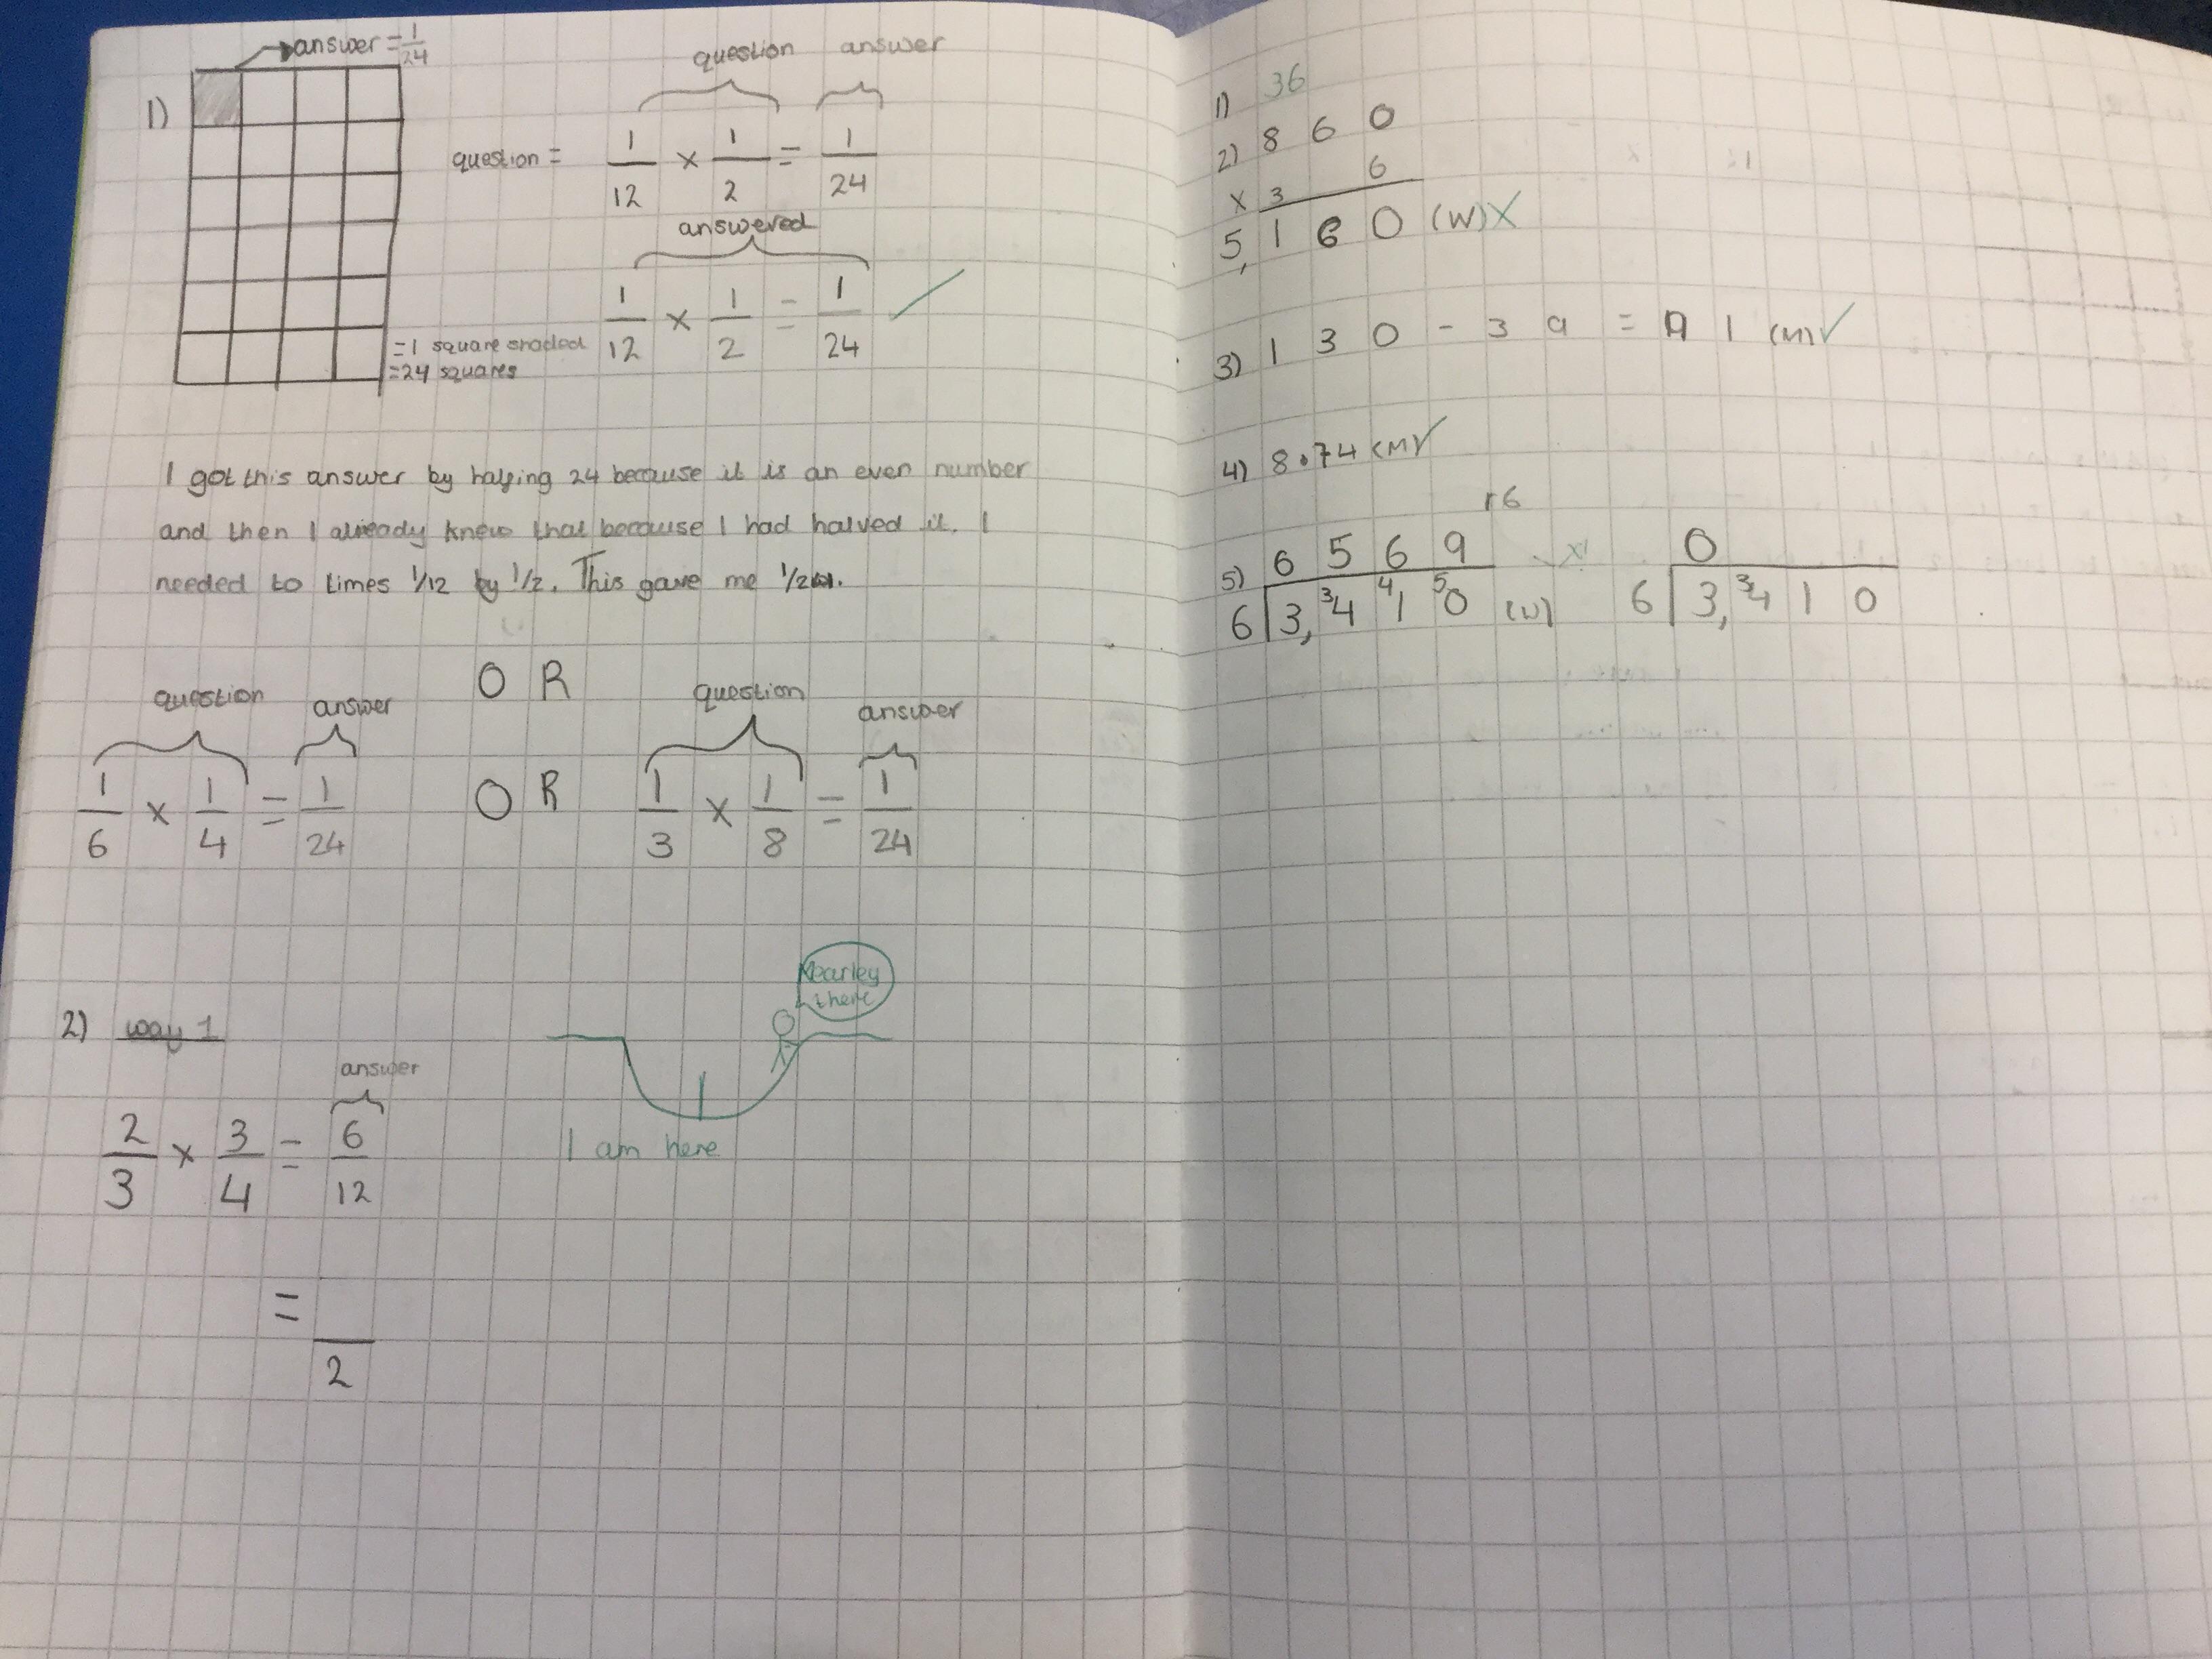 answer = 1/24
question answer
1)
question = 1/12 × 1/2 = 1/24
answered
1/12 × 1/2 = 1/24 ✓
= 1 square shaded
= 24 squares
I got this answer by halfing 24 because it is an even number
and then I already knew that because I had halved it. I
needed to times 1/12 by 1/2. This gave me
OR
question answer question answer
1/6 × 1/4 = 1/24 OR 1/3 × 1/8 = 1/24
2) way 1
Nearley
there
I am here
answer
2/3 × 3/4 = 6/12
= /2
1) 36
2) 860
× 6
3
5,160 (W) X
3) 130 - 39 = 91 (M) ✓
4) 8.74 (M) ✓
r6
5) 6 5 6 9 0
6 3, 3 4 4 1 5 0 (W) 6 3, 3 4 1 0